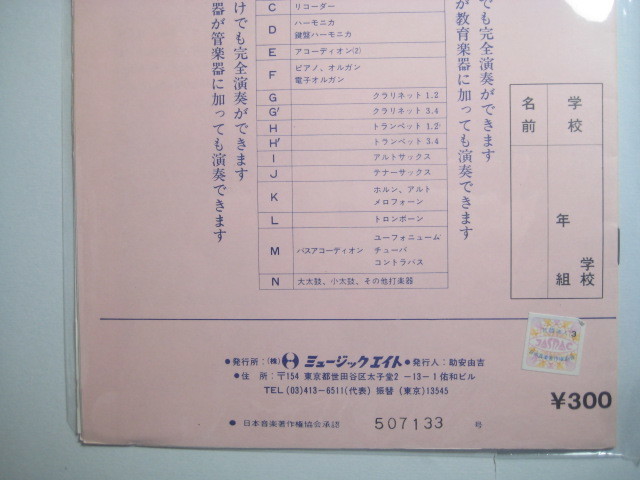 けでも完全演奏ができます
器が管楽器に加っても演奏できます
C リコーダー
D ハーモニカ
鍵盤ハーモニカ
E アコーディオン(2)
F ピアノ、オルガン
電子オルガン
G クラリネット 1.2
G' クラリネット 3.4
H トランペット 1.2
H' トランペット 3.4
I アルトサックス
J テナーサックス
K ホルン、アルト
メロフォーン
L トロンボーン
M バスアコーディオン
ユーフォニューム
チューバ
コントラバス
N 大太鼓、小太鼓、その他打楽器
でも完全演奏ができます
が教育楽器に加っても演奏できます
学校
名前
年
組
学校
●発行所：(株) ミュージックエイト ●発行人：助安由吉
●住 所：〒154 東京都世田谷区太子堂2－13－1佑和ビル
TEL (03)413－6511(代表) 振替 (東京)13545
● 日本音楽著作権協会承認 507133 号
¥300